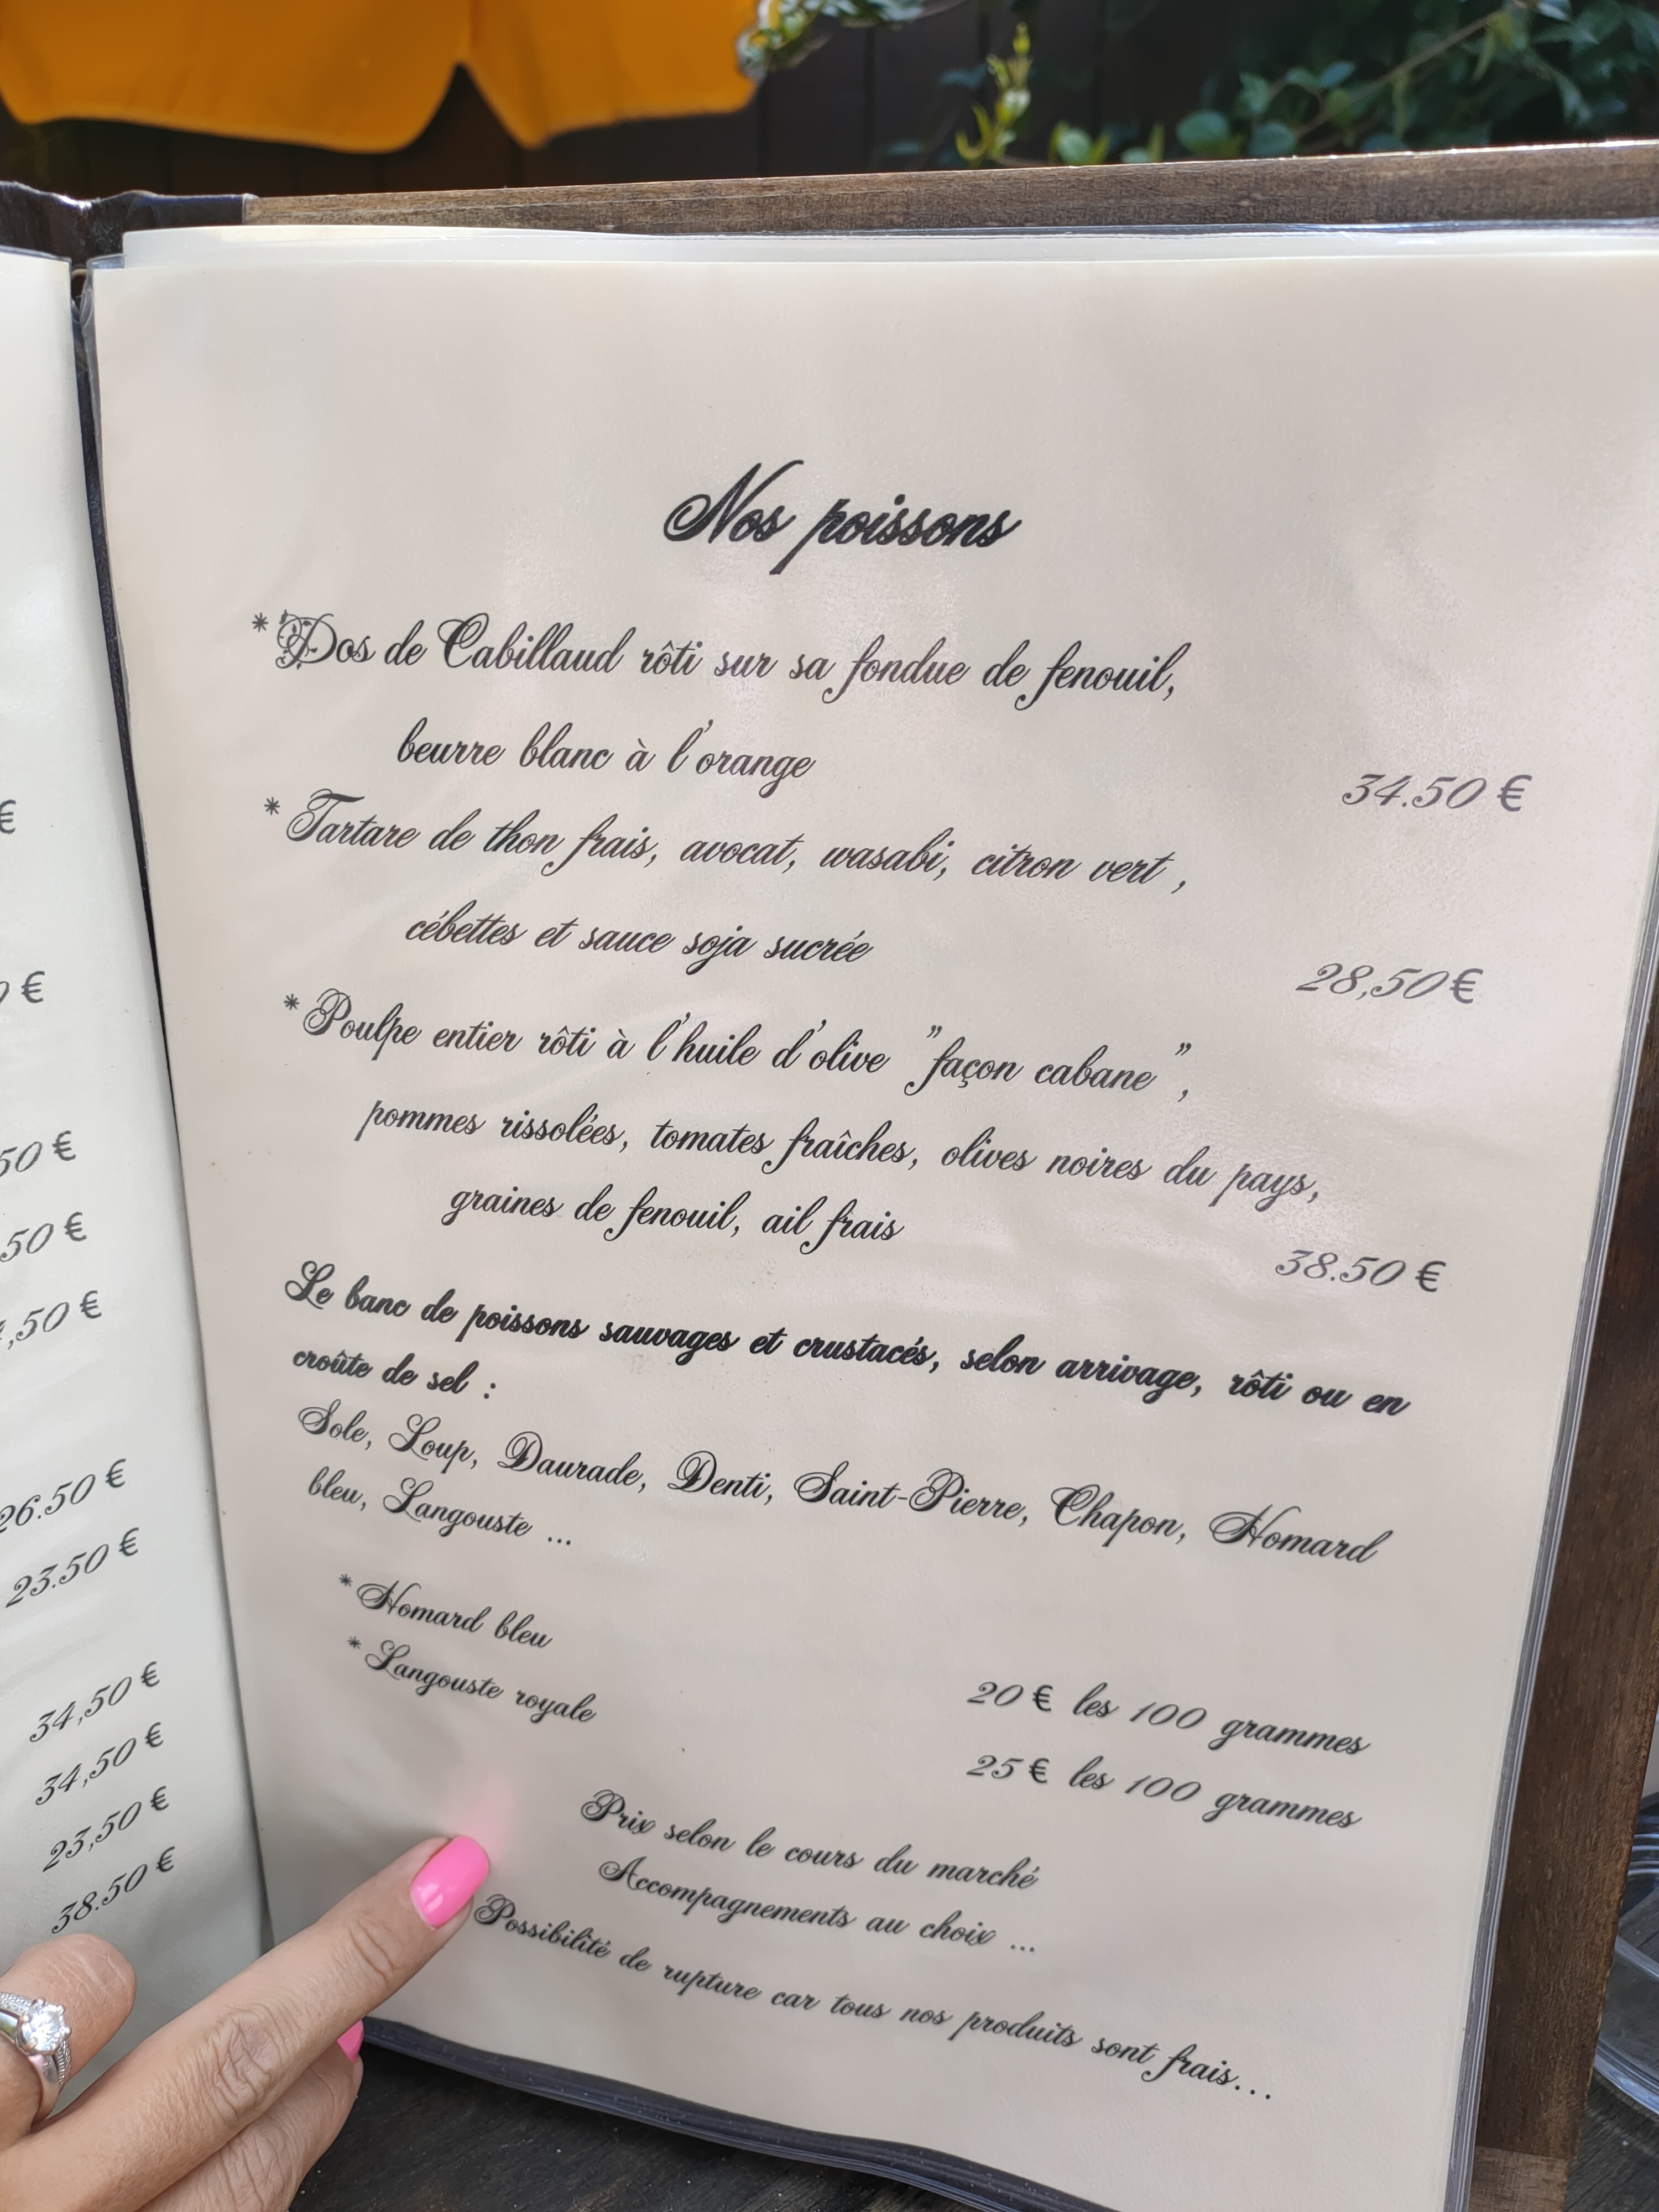 €
€
50 €
50 €
,50 €
26.50 €
23.50 €
34,50 €
34,50 €
23,50 €
38.50 €
Nos poissons
*Dos de Cabillaud rôti sur sa fondue de fenouil,
beurre blanc à l'orange
34.50 €
* Tartare de thon frais, avocat, wasabi, citron vert ,
cébettes et sauce soja sucrée
28,50€
*Poulpe entier rôti à l'huile d'olive "façon cabane",
pommes rissolées, tomates fraîches, olives noires du pays,
graines de fenouil, ail frais
38.50 €
Le banc de poissons sauvages et crustacés, selon arrivage, rôti ou en
croûte de sel :
Sole, Loup, Daurade, Denti, Saint-Pierre, Chapon, Homard
bleu, Langouste ...
*Homard bleu
20 € les 100 grammes
*Langouste royale
25 € les 100 grammes
Prix selon le cours du marché
Accompagnements au choix ...
Possibilité de rupture car tous nos produits sont frais...